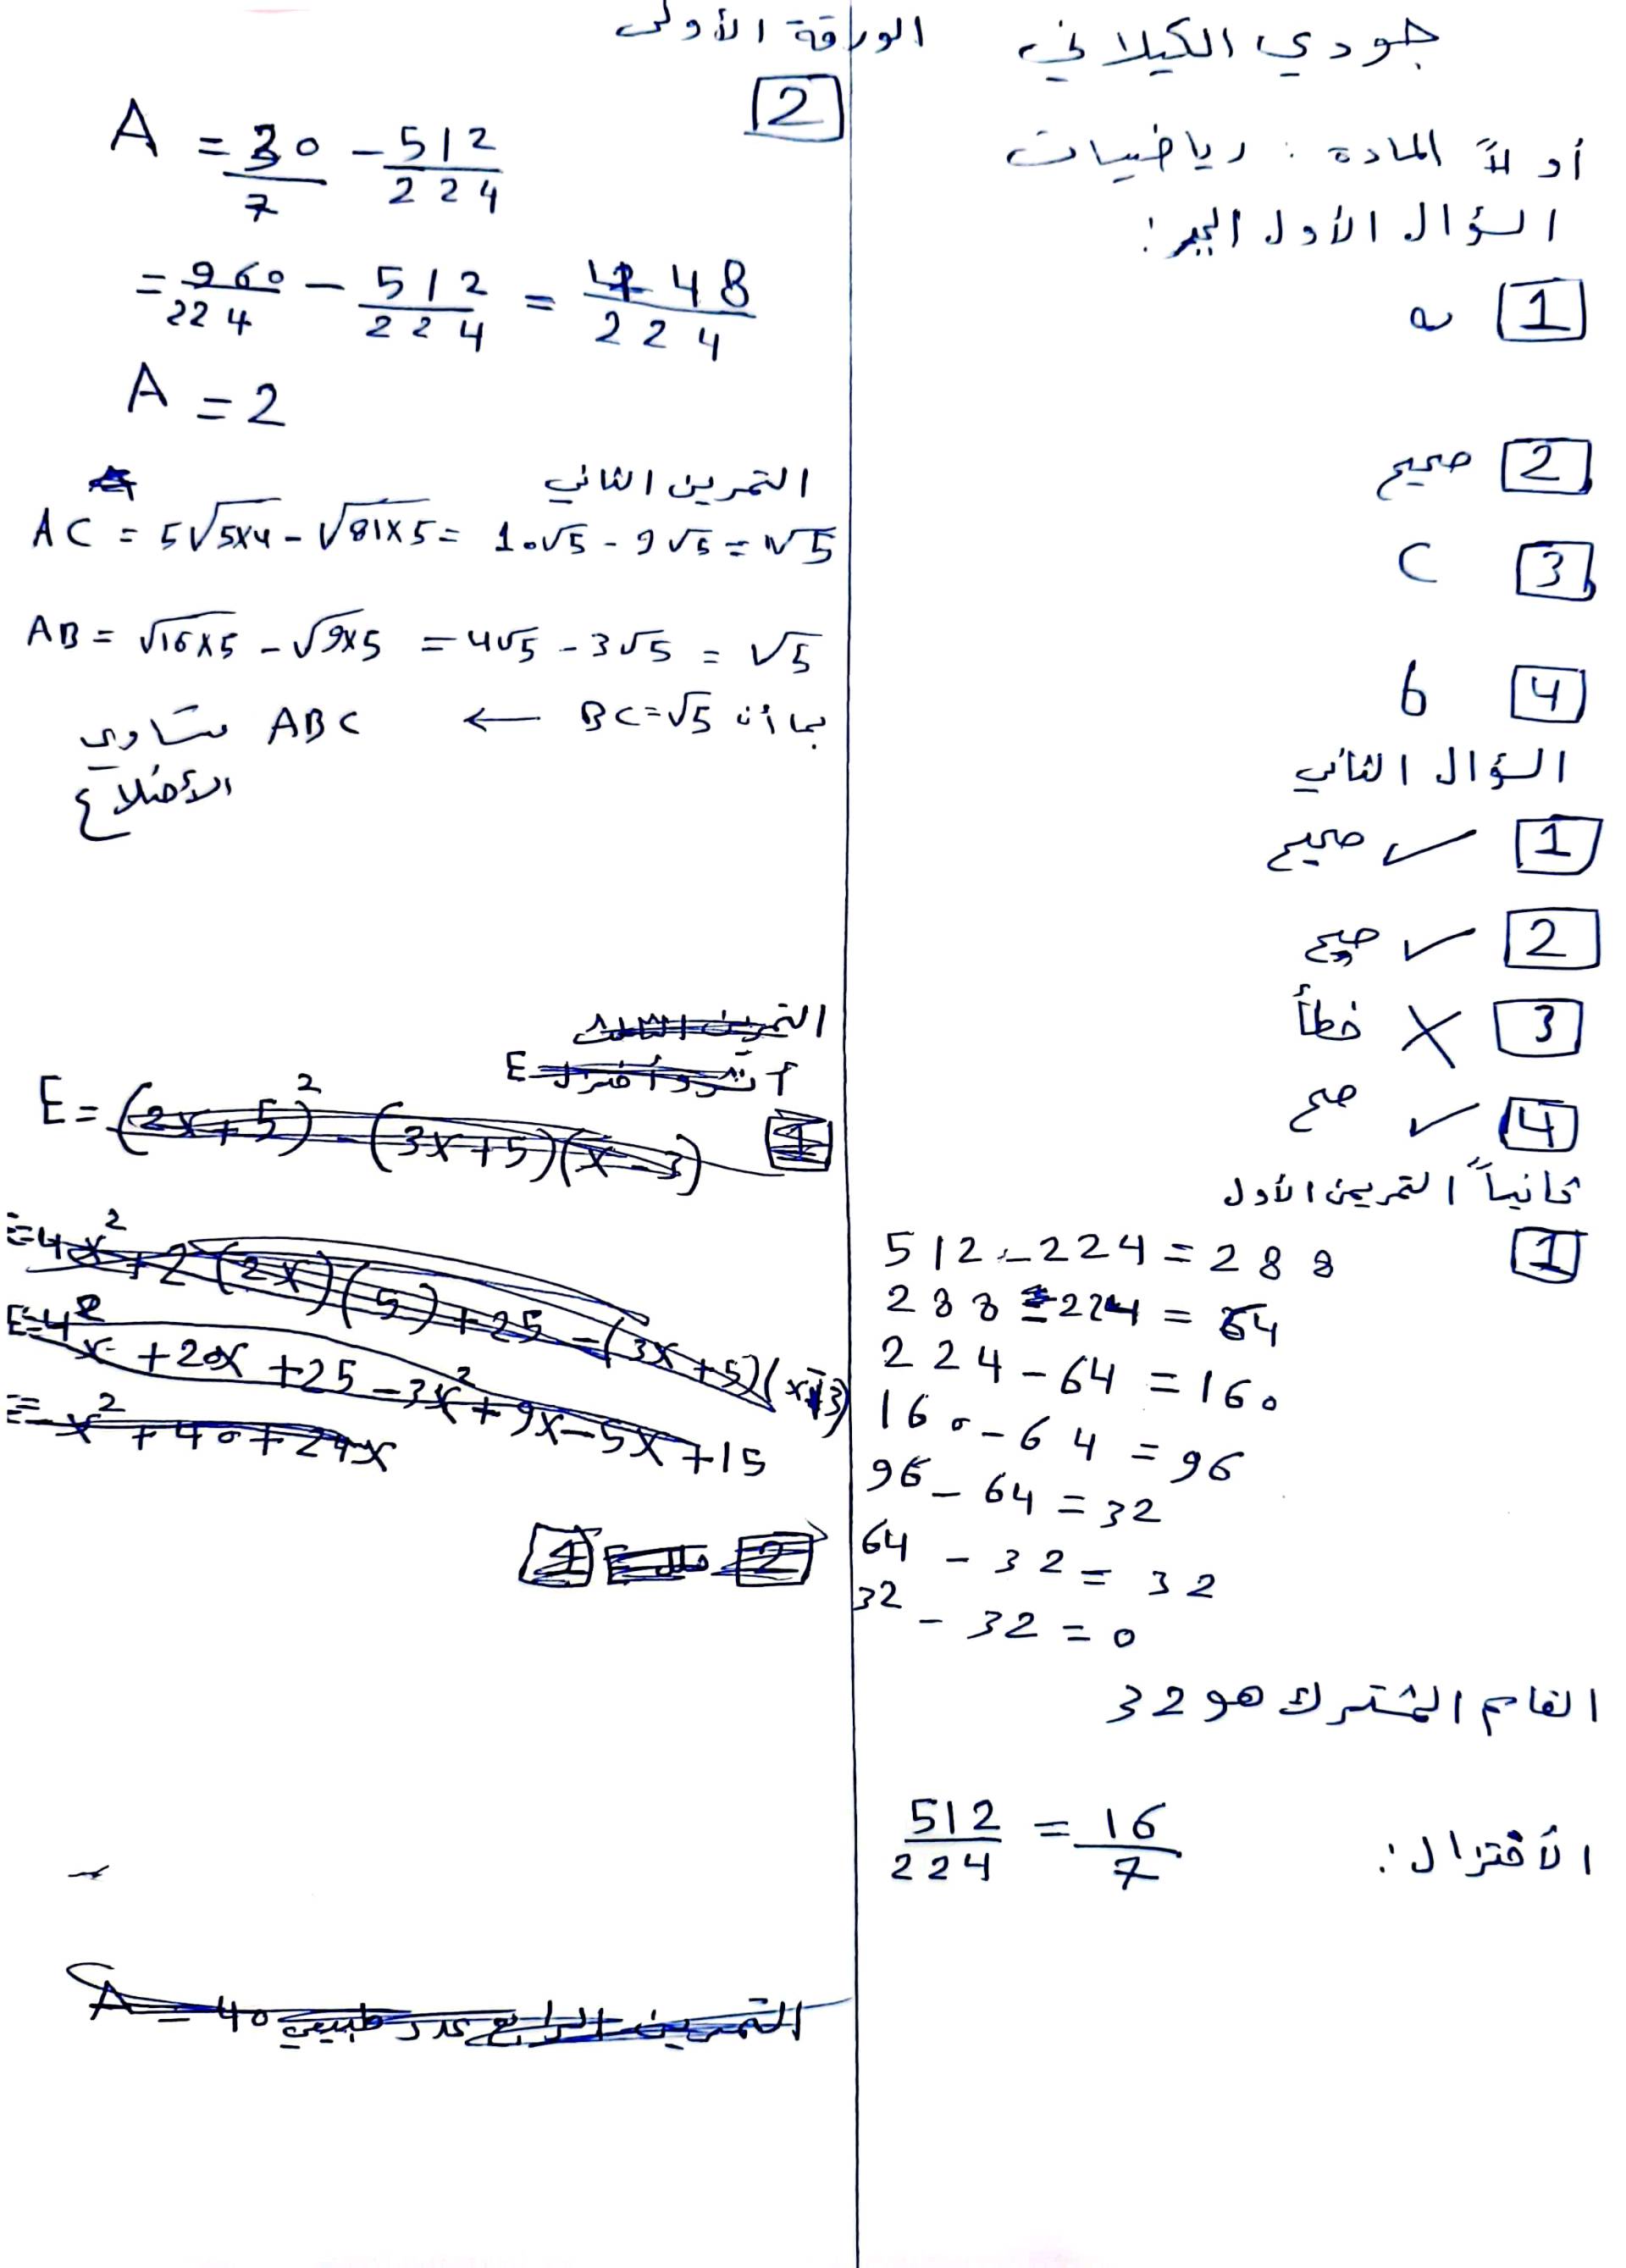 جودي الكيلاني
الورقة الأولى
أولاً المادة: رياضيات
السؤال الأول الجبر:
1 a
2 صحيح
3 C
4 b
السؤال الثاني
1 ✓ صحيح
2 ✓ صحيح
3 X خطأ
4 ✓ صح
ثانياً التمرين الأول
1 512 - 224 = 288
288 - 224 = 64
224 - 64 = 160
160 - 64 = 96
96 - 64 = 32
64 - 32 = 32
32 - 32 = 0
القاسم المشترك هو 32
الأختزال: 512/224 = 16/7
2
A = 30/7 - 512/224
= 960/224 - 512/224 = 448/224
A = 2
التمرين الثاني
AC = 5√5×4 - √81×5 = 10√5 - 9√5 = √5
AB = √16×5 - √9×5 = 4√5 - 3√5 = √5
بما أن BC = √5 ← ABC متساوي
الأضلاع
التمرين الثالث
أنشر و أختزل E
1 E = (2x+5)² - (3x+5)(x-3)
E = 4x² + 2(2x)(5) + 25 - (3x+5)(x-3)
E = 4x² + 20x + 25 - 3x² + 9x - 5x + 15
E = x² + 40 + 24x
2 1
التمرين الرابع عدد طبيعي A = 40